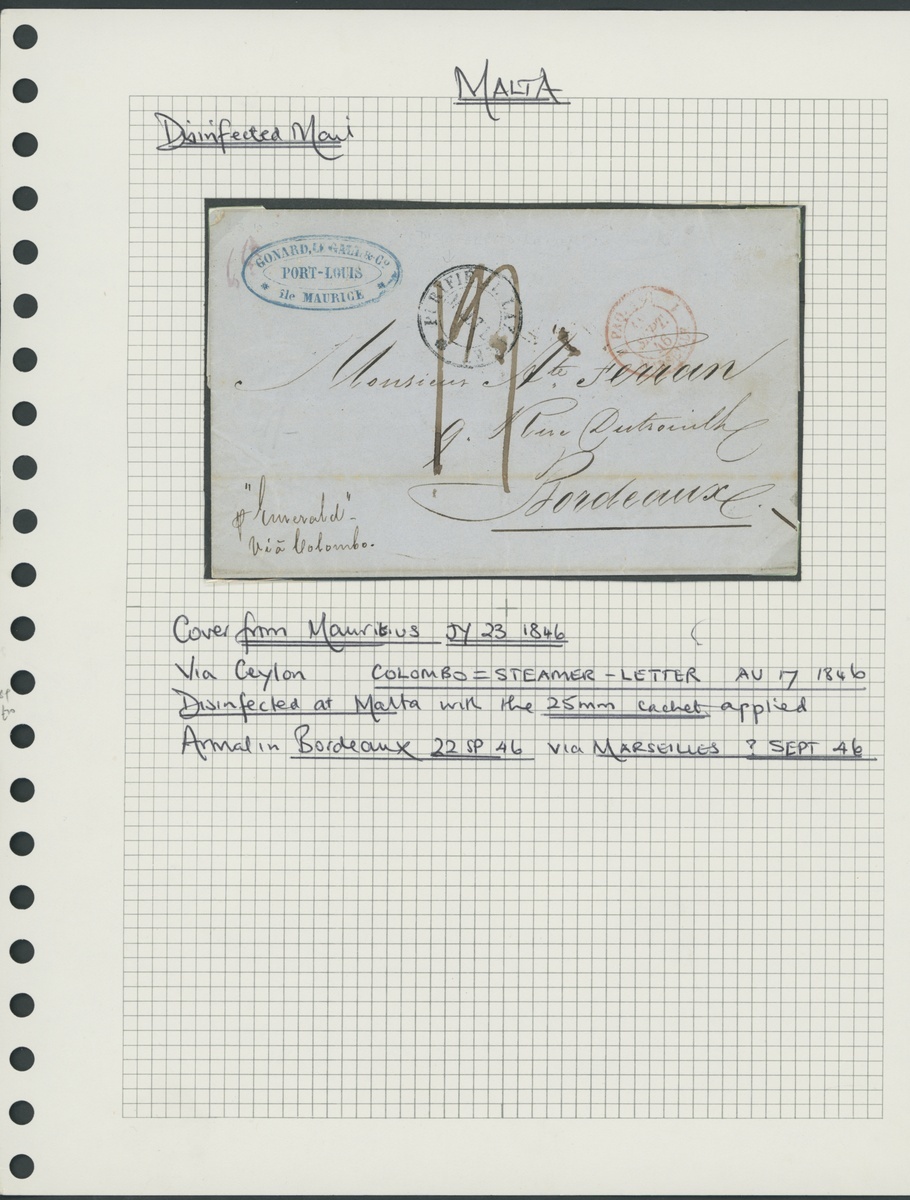 MALTA
Disinfected Mail
GONARD, LE GALL & Co
PORT-LOUIS
île MAURICE
PURIFIE AU LAZ
SEPT.
46
Monsieur Ate Ferran
9. Rue
Bordeaux
p "Emerald"
Viâ Colombo.
Cover from Mauritius JY 23 1846
Via Ceylon COLOMBO = STEAMER - LETTER AU 17 1846
Disinfected at Malta with the 25mm cachet applied
Arrival in Bordeaux 22 SP 46 via MARSEILLES ? SEPT 46